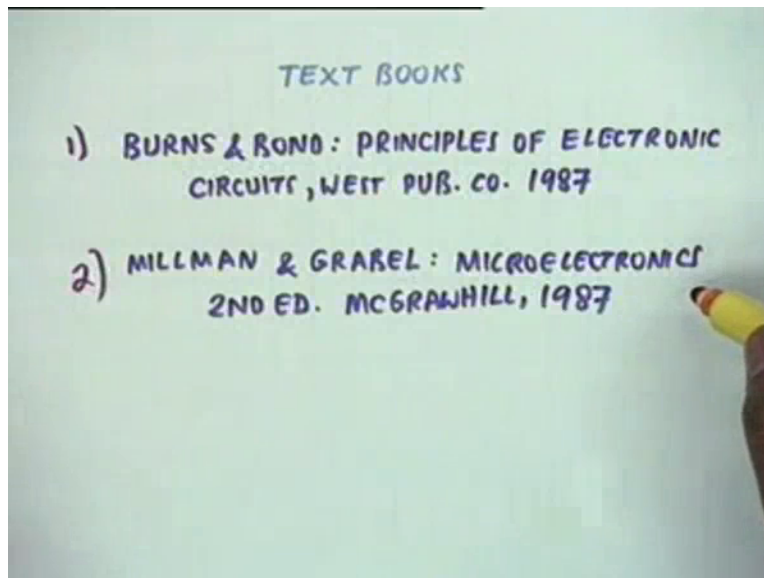 TEXT BOOKS
1) BURNS & BOND: PRINCIPLES OF ELECTRONIC
CIRCUITS, WEST PUB. CO. 1987
2) MILLMAN & GRABEL: MICROELECTRONICS
2ND ED. MCGRAWHILL, 1987